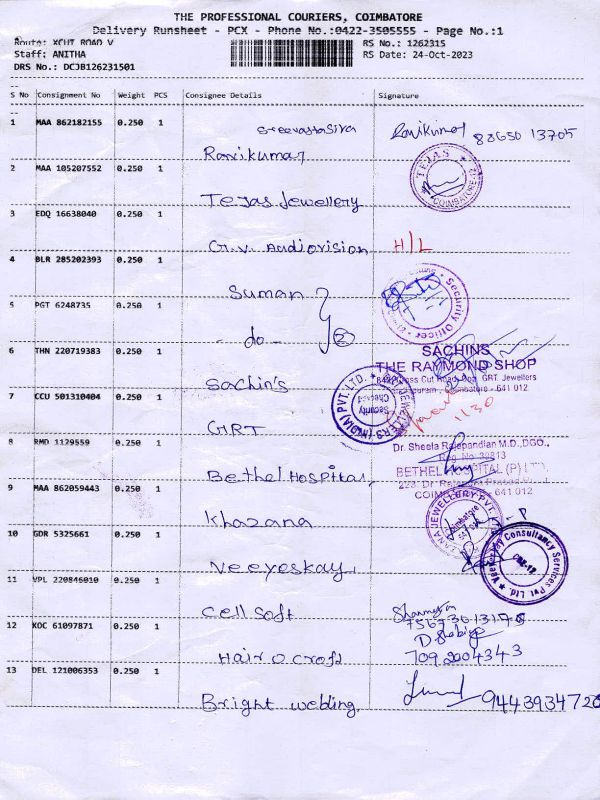 THE PROFESSIONAL COURIERS, COIMBATORE
Delivery Runsheet - PCX - Phone No.:0422-3505555 - Page No.:1
Route: XCUT ROAD V
Staff: ANITHA
DRS No.: DCJB126231501
RS No.: 1262315
RS Date: 24-Oct-2023
S No Consignment No Weight PCS Consignee Details Signature
1 MAA 862182155 0.250 1
Ravikumar Ravikumar 88650 13705
2 MAA 105207552 0.250 1
TEJAS COIMBATORE
Tejas Jewellery
3 EDQ 16638040 0.250 1
G.V. Audiovision H/L
4 BLR 285202393 0.250 1
Suman
Security Officer
5 PGT 6248735 0.250 1
- do - 2
6 THN 220719383 0.250 1
SACHINS
THE RAYMOND SHOP
Cross Cut Road, Opp. GRT. Jewellers
Coimbatore - 641 012
Sachin's
7 CCU 501310404 0.250 1
JEWELLERS (INDIA) PVT. LTD.
Security Checked
1130
GRT
8 RMD 1129559 0.250 1
Dr. Sheela Rajepandian M.D.,DGO.,
Reg. No. 39813
BETHEL HOSPITAL (P) LTD.
641 012
Bethel Hospital,
9 MAA 862059443 0.250 1
JEWELLERY PVT.
Khazana
10 GDR 5325661 0.250 1
Consultancy Services Pvt Ltd.
Veeyeskay,
11 VPL 220846010 0.250 1
Cell Soft
12 KOC 61097871 0.250 1
Hair O Croft 7092004343
13 DEL 121006353 0.250 1
Bright wedding. 9443934720